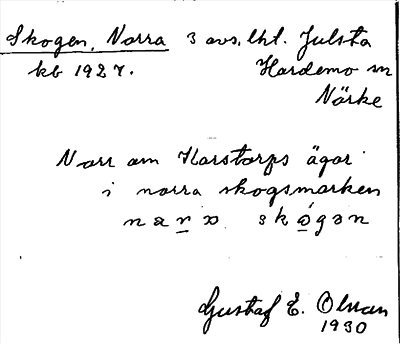 Skogen, Norra 3 avs. lht. Julsta
kb 1927. Hardemo sn
Närke
Norr om Karstorps ägor
i norra skogsmarken
nara skógən
Gustaf E. Olman
1930